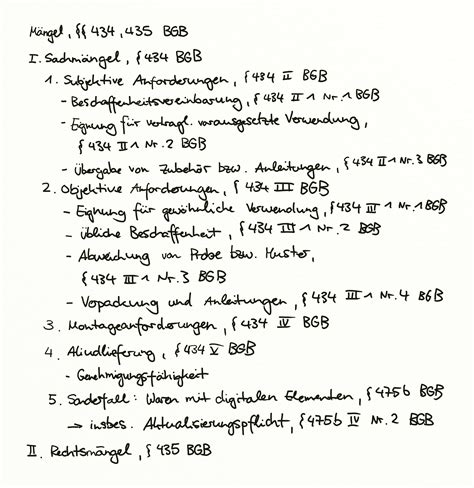 Mängel, §§ 434, 435 BGB
I. Sachmängel, § 434 BGB
1. Subjektive Anforderungen, § 434 II BGB
- Beschaffenheitsvereinbarung, § 434 II 1 Nr. 1 BGB
- Eignung für vertragl. vorausgesetzte Verwendung,
§ 434 II 1 Nr. 2 BGB
- Übergabe von Zubehör bzw. Anleitungen, § 434 II 1 Nr. 3 BGB
2. Objektive Anforderungen, § 434 III BGB
- Eignung für gewöhnliche Verwendung, § 434 III 1 Nr. 1 BGB
- übliche Beschaffenheit, § 434 III 1 Nr. 2 BGB
- Abweichung von Probe bzw. Muster,
§ 434 III 1 Nr. 3 BGB
- Verpackung und Anleitungen, § 434 III 1 Nr. 4 BGB
3. Montageanforderungen, § 434 IV BGB
4. Aliudlieferung, § 434 V BGB
- Genehmigungsfähigkeit
5. Sonderfall: Waren mit digitalen Elementen, § 475b BGB
→ insbes. Aktualisierungspflicht, § 475b IV Nr. 2 BGB
II. Rechtsmängel, § 435 BGB